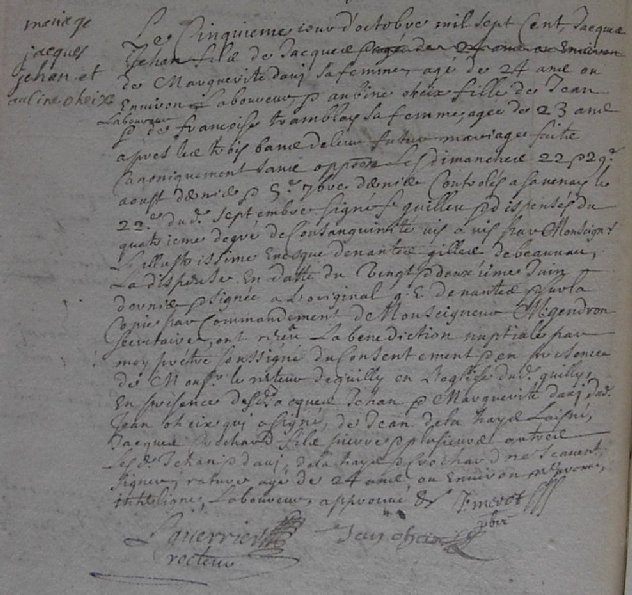 mariage
jacques
Jehan et
aulineoheix
Le Cinquieme iour d'octobre mil sept Cent, Jacque
Jehan fils de Jacque agé de 24 ans ou Environ
de Marguerite dauj sa femme, agé de 24 ans ou
Environ Laboureur, p auline oheix fille de Jean
Laboureur
p de françoise tramblay sa femme agee de 23 ans
apres les trois bans de leur futur mariage faits
Canoniquement sans oppoon Les dimanches 22 p 29e
aoust dernier p 5e 7bre dernier Controlés a savenay le
22e dud. septembre signé quilleu p dispenses du
quatrieme degré de Consanguinité vis a vis par Monseigr
L'illustrissime Evesque de nantes gilles de beauvau,
La dispense En datte du Vingt p deuxieme Juin
dernier p signée a L'original g. E de nantes p sur la
Copie par Commandement de Monseigneur Mgendron
Secretaire, ont receu La benediction nuptiale par
moy prêtre soussigné du Consentement p en presence
de Monsr le recteur de quilly en L'eglise dud. quilly,
En presence desd. Jacque Jehan p Marguerite dauj dud.
Jean oheix qui a signé, de Jean dela haye Laisné,
Jacque Rochard fils pierre p plusieurs autres
Lesd. Jehan p dauj, dela haye p Rochard ne scavent
signer, rature agé de 24 ans ou Environ
interligne, Laboureur, approuvé &
pbre
L guerrier
Jan oheix
recteur